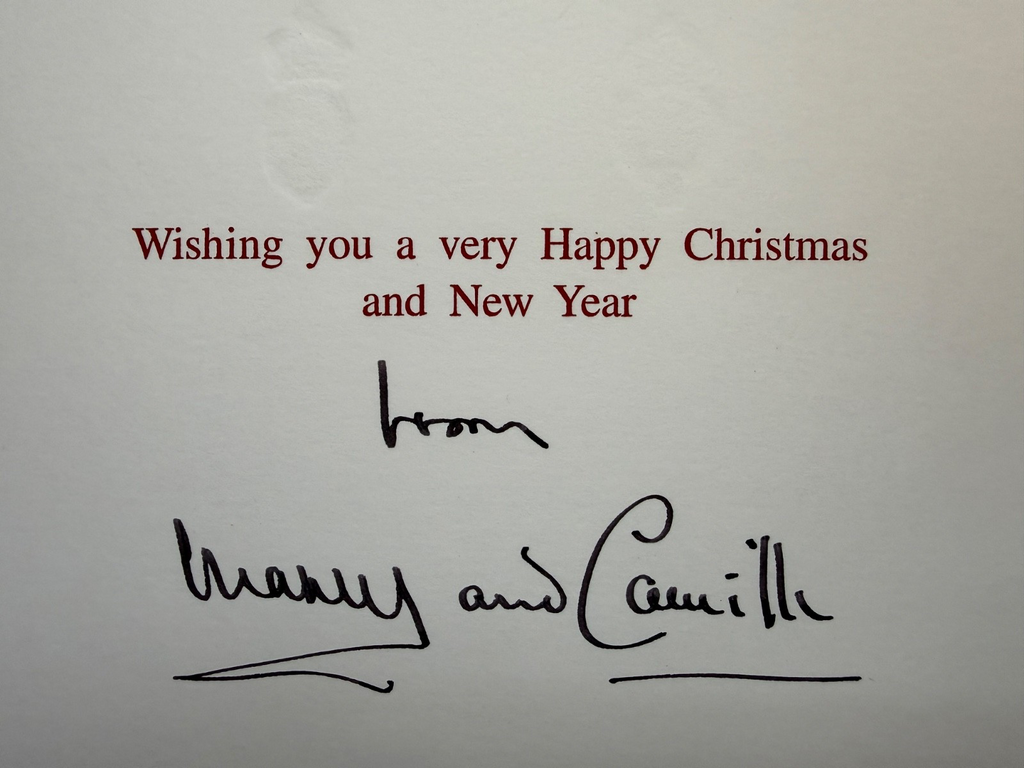 Wishing you a very Happy Christmas
and New Year
from
and Camille